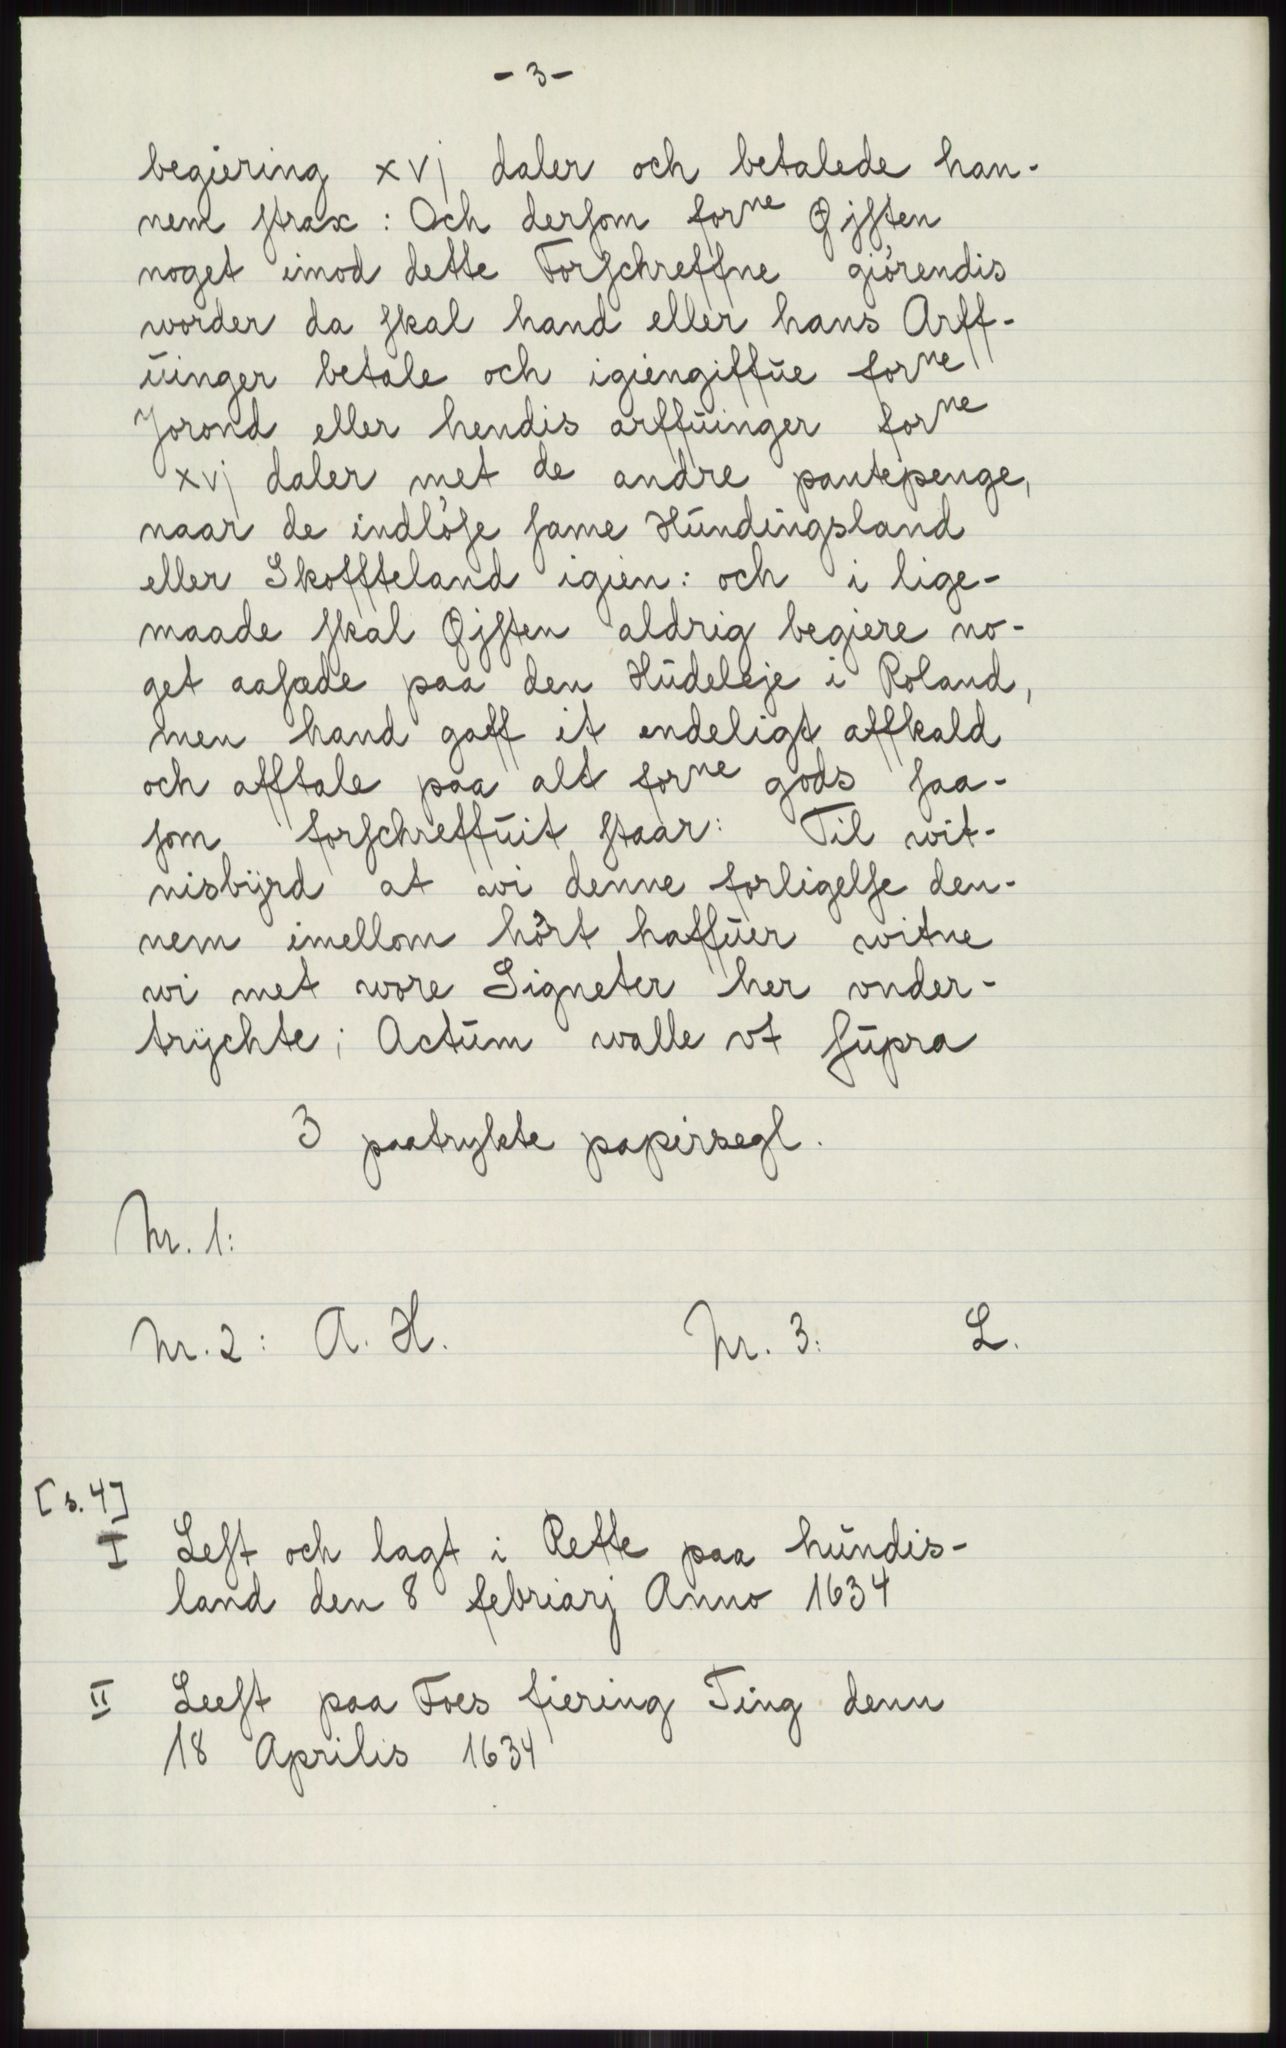 - 3 -
begiering xvj daler och betalede han-
nem strax : Och dersom forne Øjsten
noget imod dette Forschreffne giörendis
worder da skal hand eller hans Arff-
ŭinger betale och igiengiffŭe forne
Jorond eller hendis arffŭinger forne
xvj daler met de andre pantepenge,
naar de indlöse same Hŭndingsland
eller Skoffteland igien: och i lige-
maade skal Øjsten aldrig begiere no-
get aasæde paa den Hŭdeleje i Roland,
men hand gaff it endeligt affkald
och afftale paa alt forne gods saa-
som forschreffŭit staar: Til wit-
nisbÿrd at wi denne forligelse den-
nem imellom hört haffŭer witne
wi met wore Signeter her vnder-
trÿchte; Actŭm walle vt sŭpra
3 paatrykte papirsegl.
Nr. 1:
Nr. 2: A. H. Nr. 3: L.
[s. 4]
I Lest och lagt i Rette paa hŭndis-
land den 8 febriarj Anno 1634
II Leest paa Foes fiering Ting denn
18 Aprilis 1634